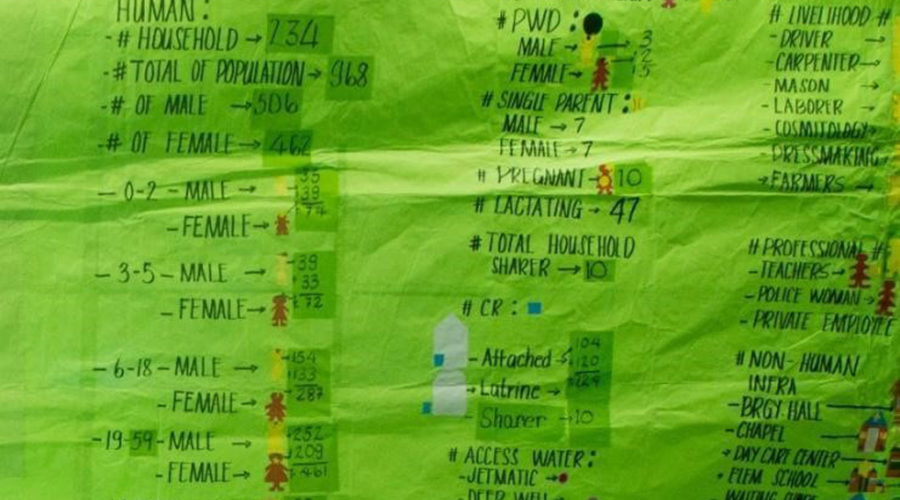 HUMAN:
-# HOUSEHOLD → 234
-# TOTAL OF POPULATION → 968
-# OF MALE → 506
-# OF FEMALE → 462
- 0-2 - MALE → 35
39
74
- FEMALE →
- 3-5 - MALE → 39
33
72
- FEMALE →
- 6-18 - MALE → 154
133
287
- FEMALE →
- 19-59 - MALE → 252
209
461
- FEMALE →
# PWD :
MALE → 3
2
FEMALE → 5
# SINGLE PARENT :
MALE → 7
FEMALE → 7
# PREGNANT → 10
# LACTATING → 47
# TOTAL HOUSEHOLD
SHARER → 10
# CR :
104
- Attached 120
- Latrine → 224
- Sharer → 10
# ACCESS WATER :
- JETMATIC →
- DEEP WELL
# LIVELIHOOD #
- DRIVER →
- CARPENTER →
- MASON
- LABORER →
- COSMITOLOGY →
- DRESSMAKING
→ FARMERS →
# PROFESSIONAL #
- TEACHERS →
- POLICE WOMAN →
- PRIVATE EMPLOYEE
# NON-HUMAN
INFRA
- BRGY HALL
- CHAPEL
→ DAY CARE CENTER
• ELEM SCHOOL